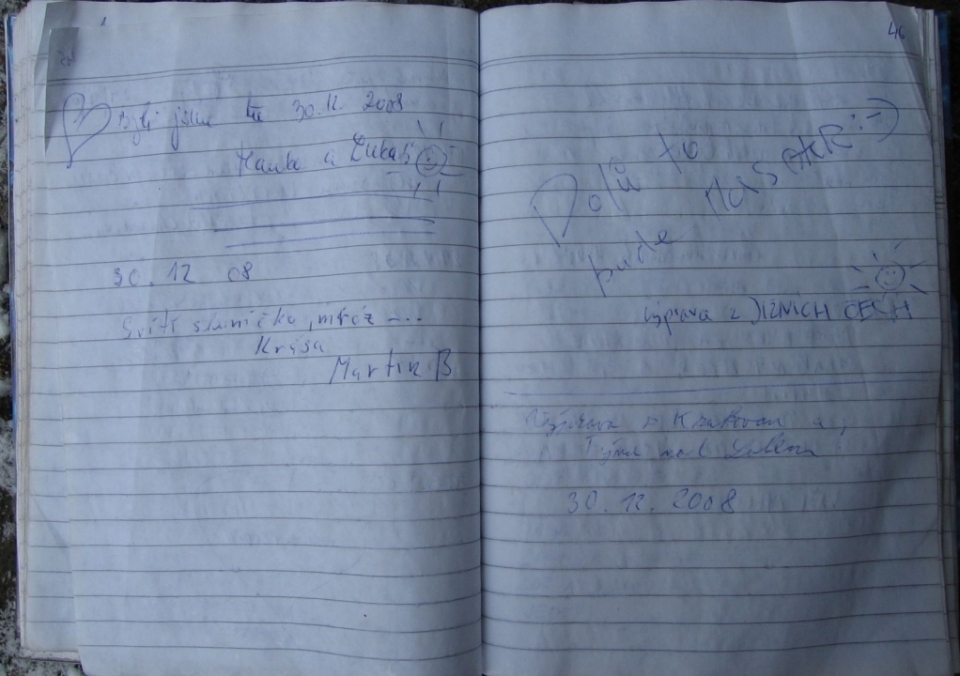 Byli jsme tu 30.12. 2008
Hanka a Lukáš
30.12 08
Svítí sluníčko, mráz ~...
Krása
Martin B
46
Dolů to
bude MASAKR :-)
výprava z JIŽNÍCH ČECH
Výprava z Krakovan a
Týna nad
30.12.2008